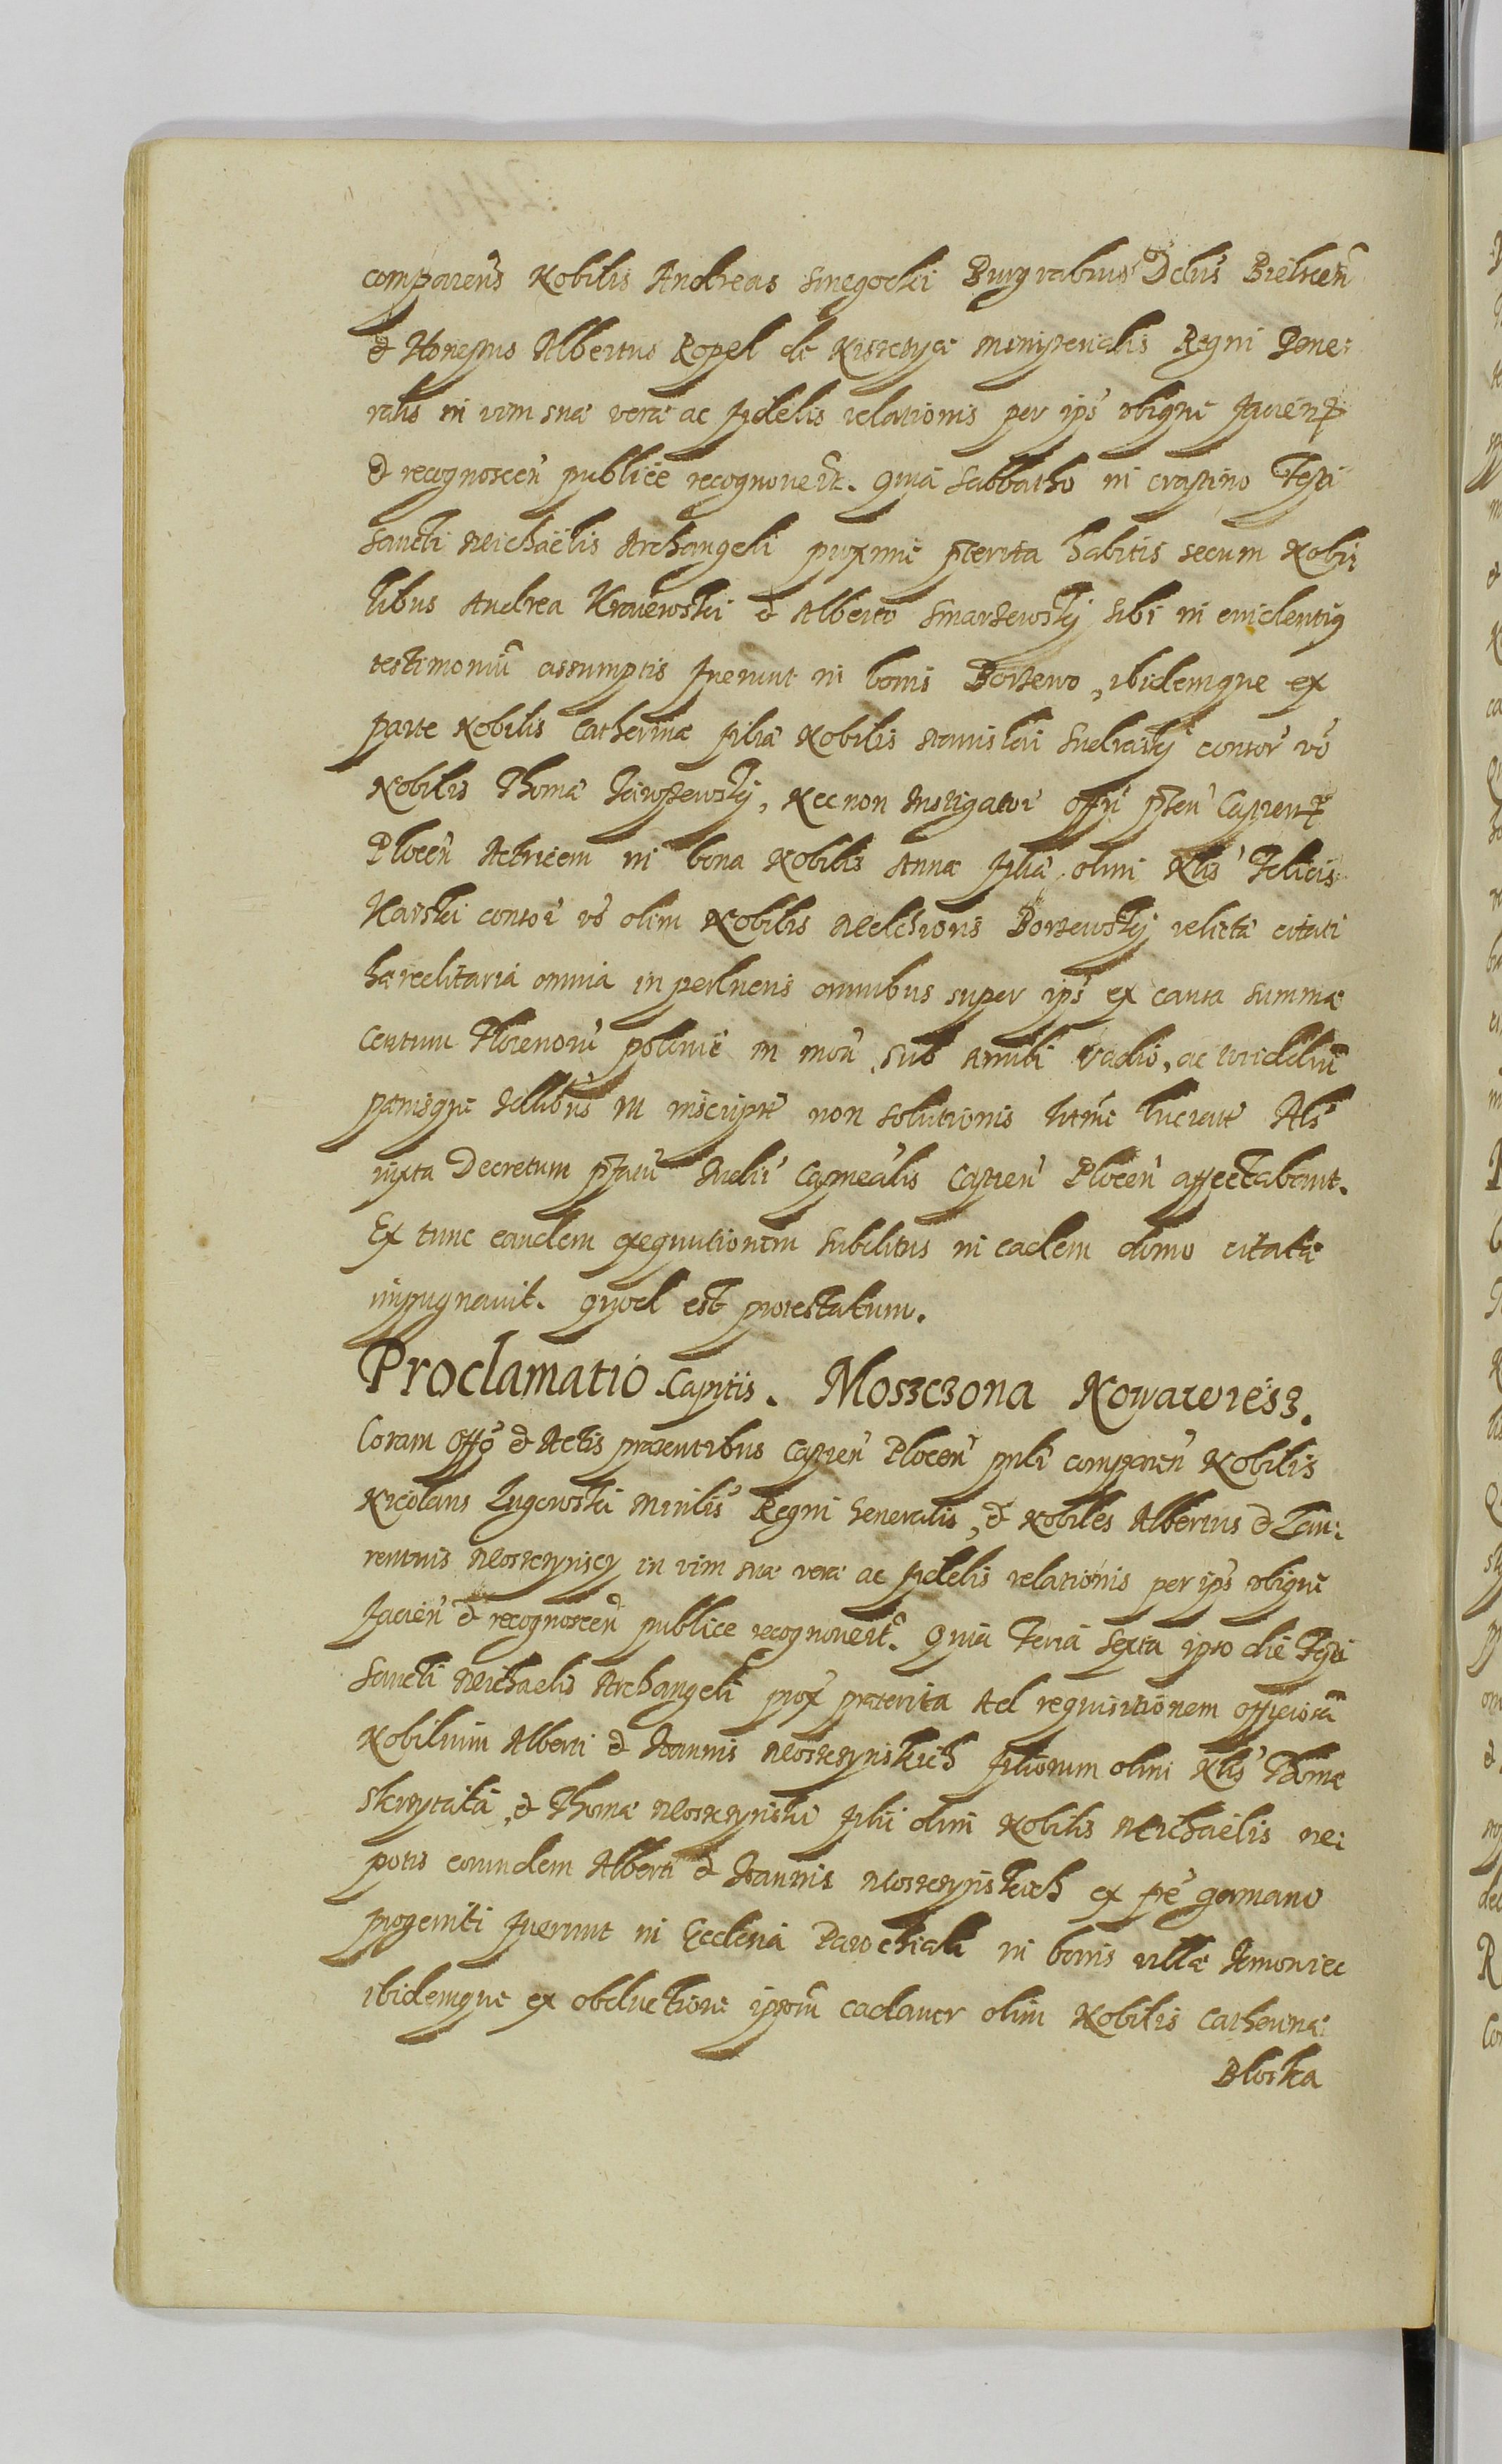 comparens Nobilis Andreas Smegocki Burgrabius Dclus Bielscen̄
& Honestus Albertus Kopel de Ministerialis Regni Gene:
ralis in vim suæ veræ ac fidelis relationis per ips̄ obiqne facien̄
& recognoscen̄ publice recognouer̄t. Quia Sabbatho in crastino Festi
Sancti Michaelis Archangeli proxime p̄terita habitis secum Nobi:
libus Andrea Krajewski & Alberto Smarzewskj sibi in euidentius
testimoniū assumptis fuerunt in bonis Borzewo, ibidemque ex
parte Nobilis Catherinæ filiæ Nobilis Stanislai consor̄ vō
Nobilis Thomæ Jarossewskj, Necnon Instigatore Offii p̄ten̄ Capten̄
Plocen̄ Actricem in bona Nobilis Annæ filiæ olim Nlis Felicis
Karski consor̄ vō olim Nobilis Melchioris Borzewskj relictæ citatæ
hæreditaria omnia in perlucris omnibus super ips̄ ex causa summæ
Centum Florenorū polonic̄ in mon̄, sub simili vadio, ac
pænisque in inscript̄ non solutionis lucrat̄ Als̄
iuxta Decretum p̄satū Iudii Capnealis Capten̄ Plocen̄ affectabant.
Ex tunc eandem exequutionem subditus in eadem domo citatæ
impugnauit. quod est protestatum.
Proclamatio Capitis. Moszczona Nowawiesz.
Coram Offo & Actis præsentibus Capten̄ Plocen̄ pnlr̄ comparen̄ Nobilis
Nicolaus Lugowski Minilis Regni Generalis, & Nobiles Albertus & Lau:
rentius Moszczynscy in vim suæ veræ ac fidelis relationis per ips̄ obique
facien̄ & recognoscen̄ publice recognouer̄t. Quia Feria Sexta ipso die Fsti
Sancti Michaelis Archangeli prox̄ præterita Ad requisitionem officiosā
Nobilium Alberti & Joannis Moszczynskich filiorum olim Nlis Thomæ
& Thomæ Moszczynski filii olim Nobilis Michaelis ne:
potis eorundem Alberti & Joannis Moszczynskich ex frē germano
progeniti fuerunt in Ecclesia Parochiali in bonis villæ Imoniec
ibidemque ex obductione ipsorū cadauer olim Nobilis Catherinæ
Bloska